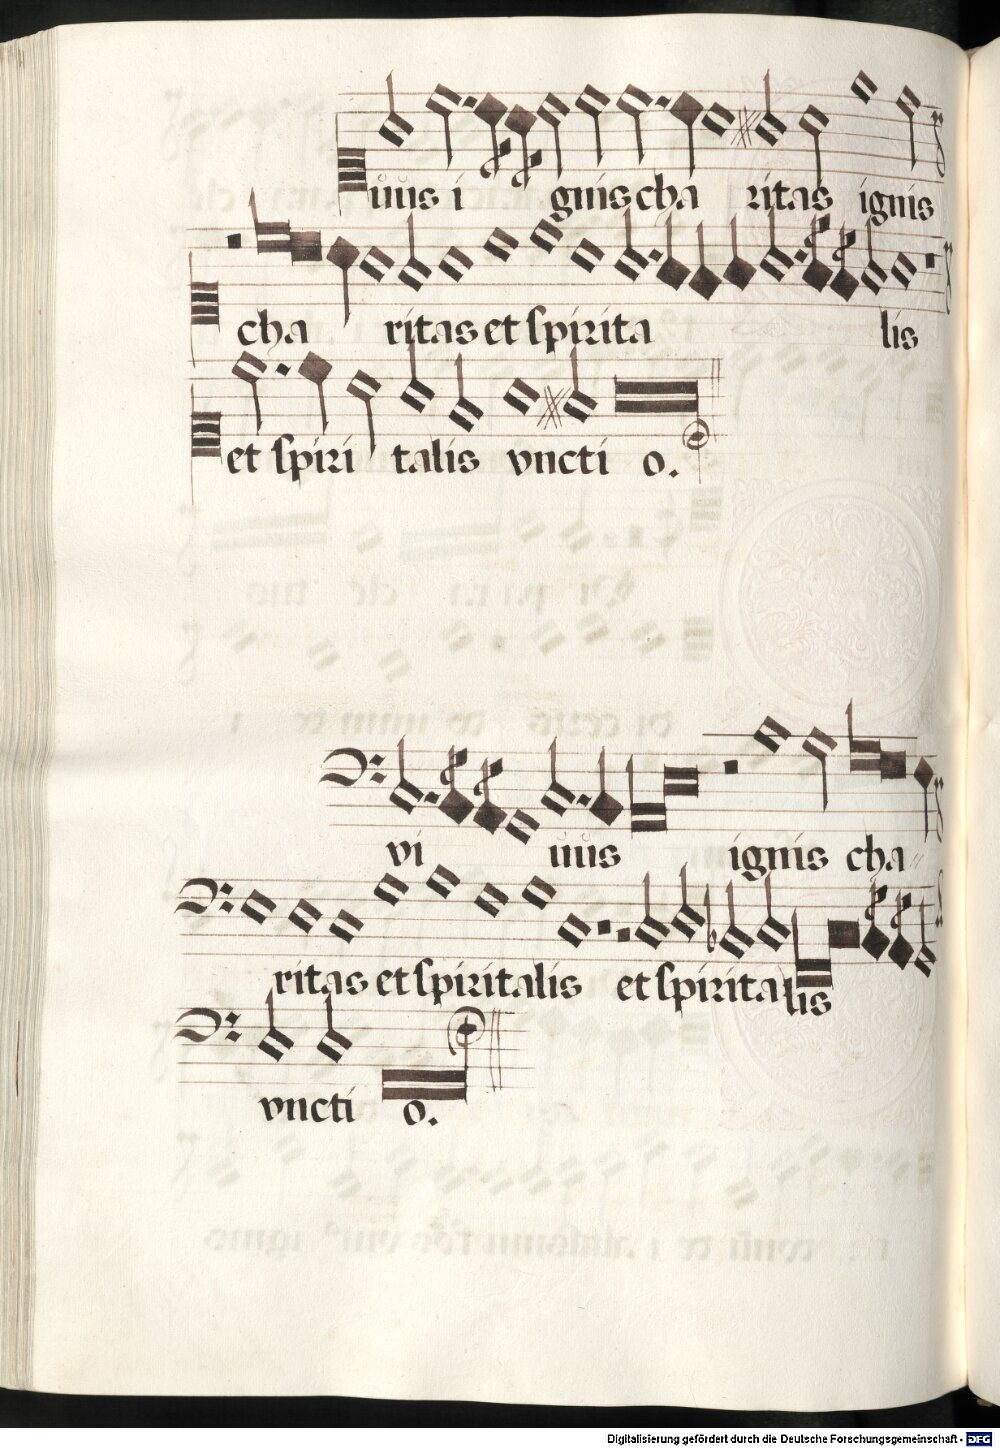 uus i gnis cha ritas ignis
cha ritas et spirita lis
et spiri talis vncti o.
vi uus ignis cha
ritas et spiritalis et spiritalis
vncti o.
Digitalisierung gefördert durch die Deutsche Forschungsgemeinschaft - DFG